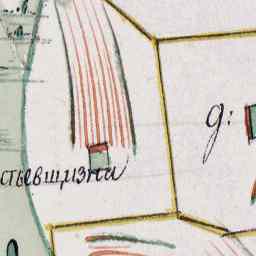 д:
стьевщизна